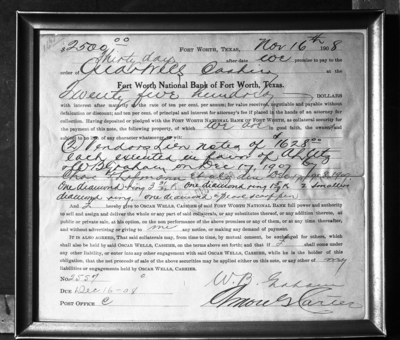 $2500.00 FORT WORTH, TEXAS, Nov 16th 1908
Thirty days after date we promise to pay to the
order of Oscar Wells Cashier at the
Fort Worth National Bank of Fort Worth, Texas.
Twenty five hundred DOLLARS
with interest after maturity at the rate of ten per cent. per annum; for value received, negotiable and payable without
defalcation or discount; and ten per cent. of principal and interest for attorney's fee if placed in the hands of an attorney for
collection. Having deposited or pledged with the FORT WORTH NATIONAL BANK OF FORT WORTH, as collateral security for
the payment of this note, the following property, of which we are in good faith, the owner and
subject to no lien of any character whatsoever
(2) Vendors Lien notes of 1628.00
each executed in favor of
on Dec 17, 1907
One diamond ring one diamond ring 2 smaller
diamond ring, one diamond
And I hereby give to OSCAR WELLS, CASHIER of said FORT WORTH NATIONAL BANK full power and authority
to sell and assign and deliver the whole or any part of said collaterals, or any substitutes thereof, or any addition thereto, at
public or private sale, at his option, on the non performance of the above promises or any of them, or at any time thereafter,
and without advertising or giving to me any notice, or making any demand of payment.
IT IS ALSO AGREED, That said collaterals may, from time to time, by mutual consent, be exchanged for others, which
shall also be held by said OSCAR WELLS, CASHIER, on the terms above set forth; and that if I shall come under
any other liability, or enter into any other engagement with said OSCAR WELLS, CASHIER, while he is the holder of this
obligation, that the net proceeds of sale of the above securities may be applied either on this note, or any other of my
liabilities or engagements held by OSCAR WELLS, CASHIER.
No. 2557
DUE Dec 16-08 W.B. Graham
POST OFFICE